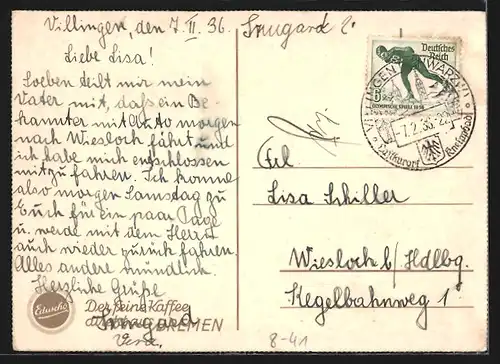 Villingen, den 7. II. 36.
Irmgard
Liebe Lisa!
Soeben teilt mir mein
Vater mit, daß ein Be-
kannter mit Auto morgen
nach Wiesloch fährt und
ich habe mich entschlossen
mitzufahren. Ich komme
also morgen Samstag zu
Euch für ein paar Tage
u. werde mit dem Herrn
auch wieder zurück fahren.
Alles andere mündlich.
Herzliche Grüße
Irmgard
Eduscho
Der feine Kaffee
BREMEN
Deutsches
Reich
OLYMPISCHE SPIELE 1936
VILLINGEN (SCHWARZW)
-7.2.36.
Luftkurort
Kneippbad
Frl.
Lisa Schiller
Wiesloch b/Hdlbg.
Kegelbahnweg 1
8-41